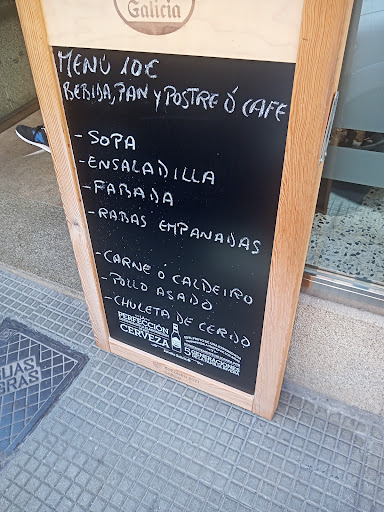 Galicia
MENÚ 10€
BEBIDA, PAN Y POSTRE Ó CAFE
- SOPA
- ENSALADILLA
- FABADA
- RABAS EMPANADAS
- CARNE Ó CALDEIRO
- POLLO ASADO
- CHULETA DE CERDO
PERFECCIÓN
CERVEZA
5 GENERACIONES